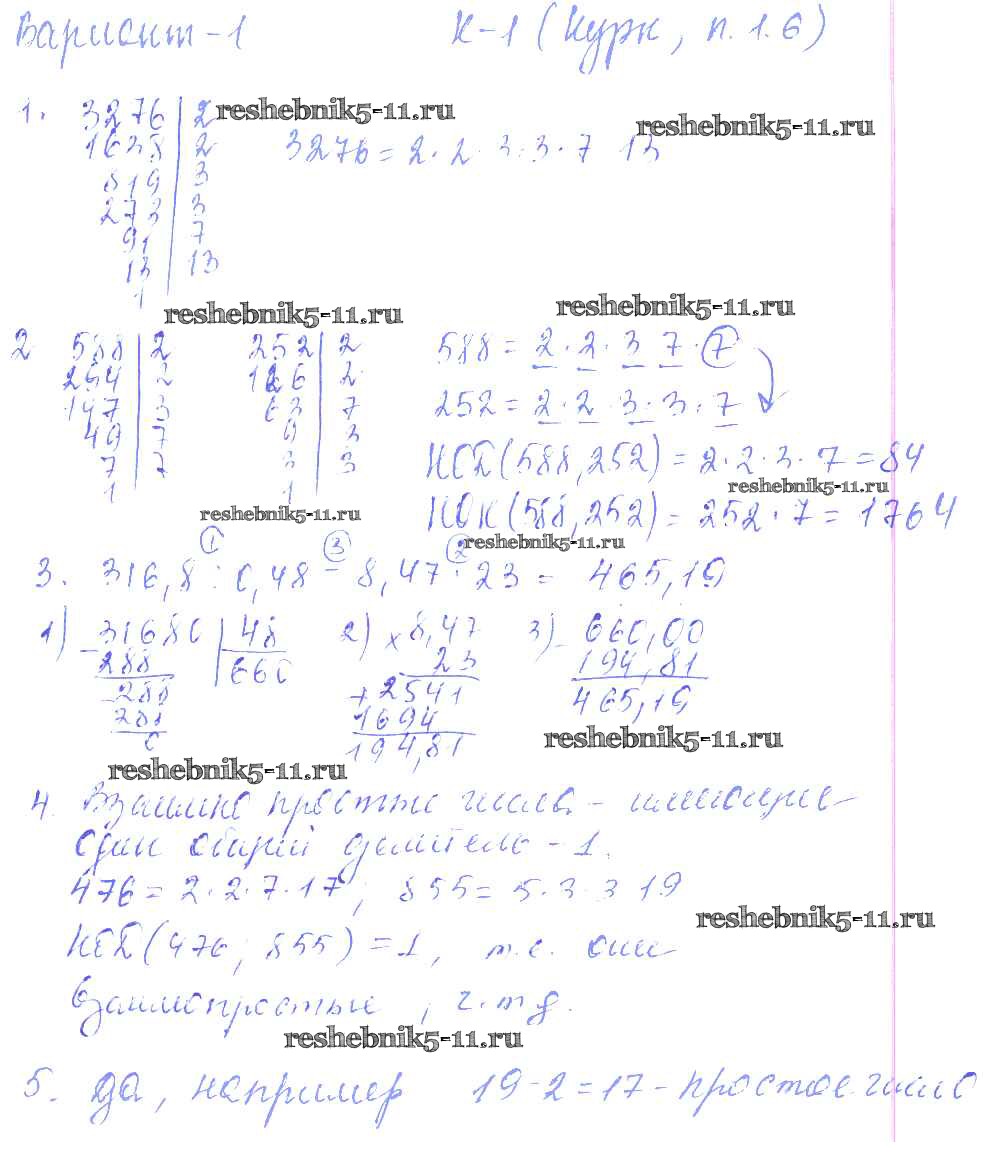 Вариант-1 К-1 (Курк, п. 1.6)
reshebnik5-11.ru
reshebnik5-11.ru
1. 3276 | 2
1638 | 2 3276 = 2·2·3·3·7 13
819 | 3
273 | 3
91 | 7
13 | 13
1
reshebnik5-11.ru
reshebnik5-11.ru
2 588 | 2 252 | 2 588 = 2·2·3 7·7
294 | 2 126 | 2
147 | 3 63 | 7 252 = 2·2·3·3·7
49 | 7 9 | 3
7 | 7 3 | 3 НОД(588,252) = 2·2·3·7 = 84
1 1
reshebnik5-11.ru
НОК(588,252) = 252·7 = 1764
reshebnik5-11.ru
reshebnik5-11.ru
1 3 2
3. 316,8 : 0,48 - 8,47 · 23 = 465,19
1) 31680 | 48 2) × 8,47 3) - 660,00
- 288 | 660 23 194,81
- 288 + 2541 465,19
288 1694
0 194,81
reshebnik5-11.ru
reshebnik5-11.ru
4. Взаимно простые числа - имеющие
один общий делитель - 1.
476 = 2·2·7·17; 855 = 5·3·3 19
reshebnik5-11.ru
НОД(476; 855) = 1, т.е. они
взаимопростые, ч.т.д.
reshebnik5-11.ru
5. Да, например 19-2=17 - простое число